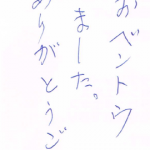 おベントウ
ました。
ありがとうご